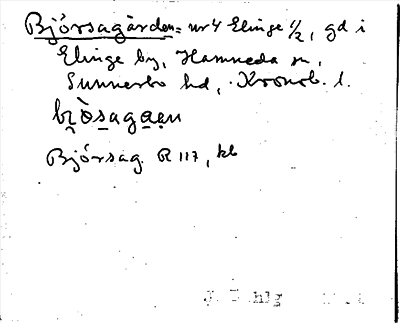 Björsagården = nr 4 Elinge 1/2, gd i
Elinge by, Hamneda sn,
Sunnerbo hd, Kronob. l.
Björsag. R 117, kb